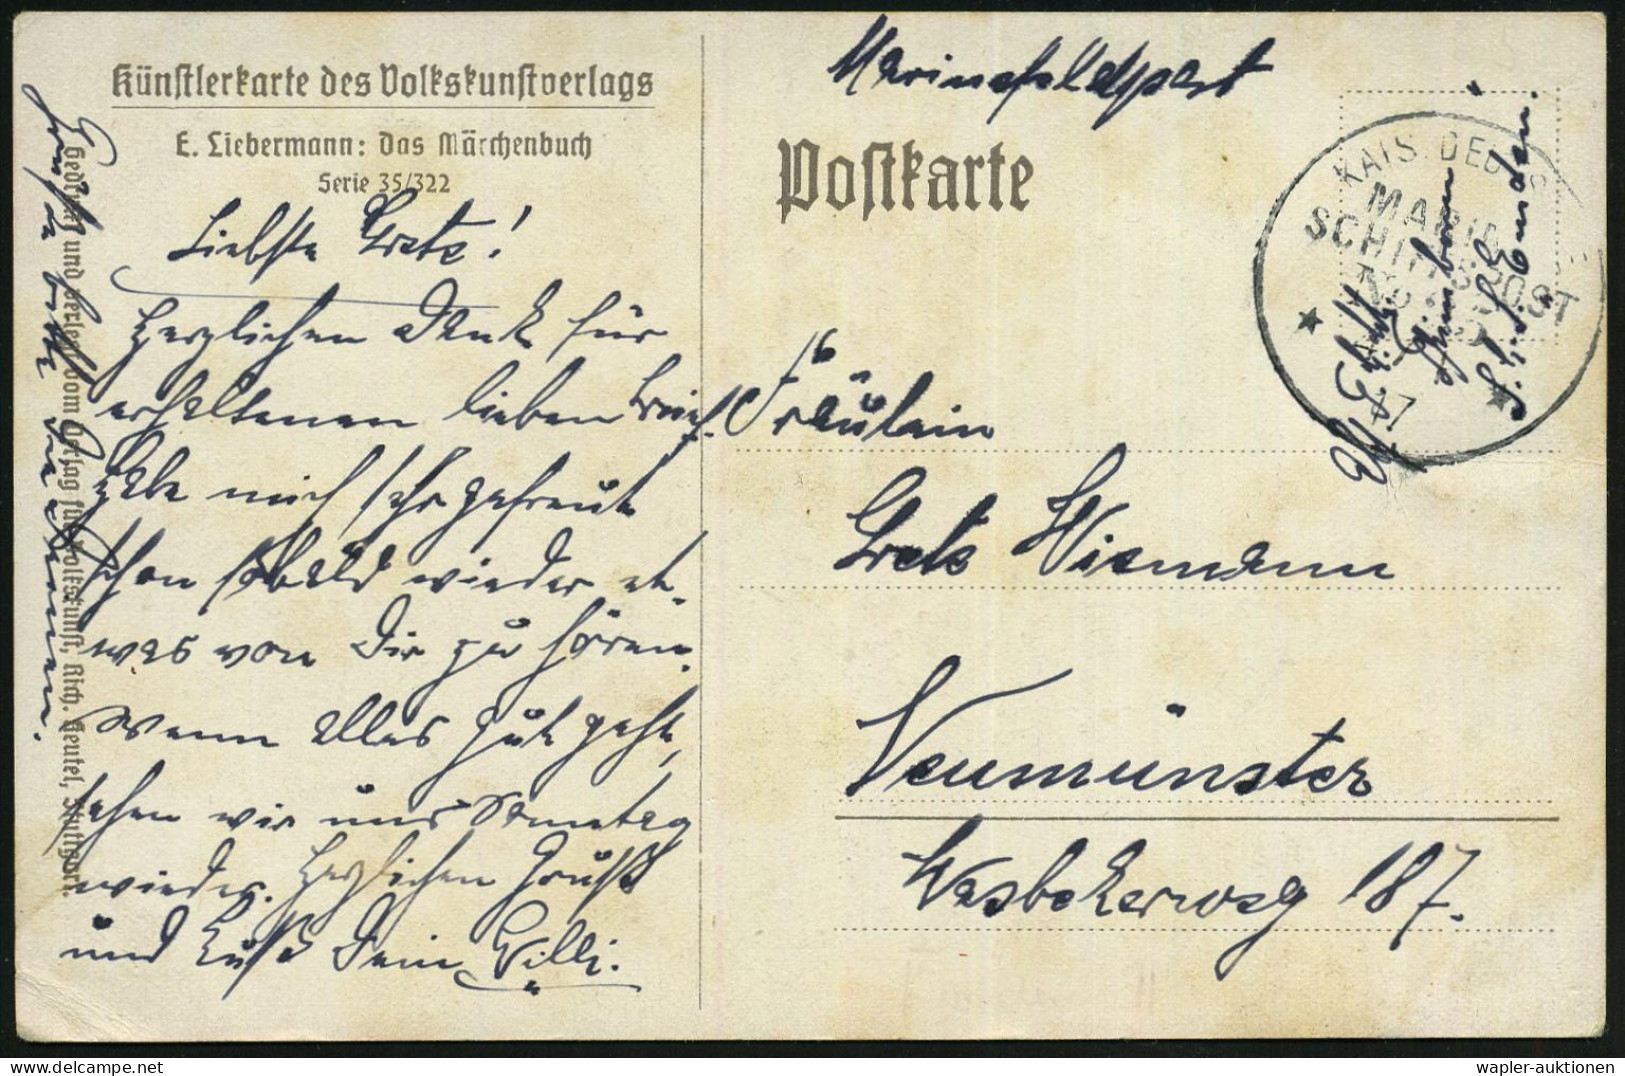 Künstlerkarte des Volkskunstverlags
E. Liebermann: Das Märchenbuch
Serie 35/322
Liebste Grete!
Herzlichen Dank für
erhaltenen lieben Brief.
Habe mich sehr gefreut
schon sobald wieder et-
was von Dir zu hören.
Wenn alles gut geht,
sehen wir uns Sonntag
wieder. Herzlichen Gruß
und Kuß Dein Willi.
Grüße bitte die Deinen.
Gedruckt und verlegt vom Verlag für Volkskunst, Rich. Keutel, Stuttgart.
Marinefeldpost
Postkarte
KAIS. DEUTS
MARINE
SCHIFFSPOST
No
S.M.S. Emden.
Fräulein
Grete Wiemann
Neumünster
Wasbekerweg 187.
wapler-auktionen